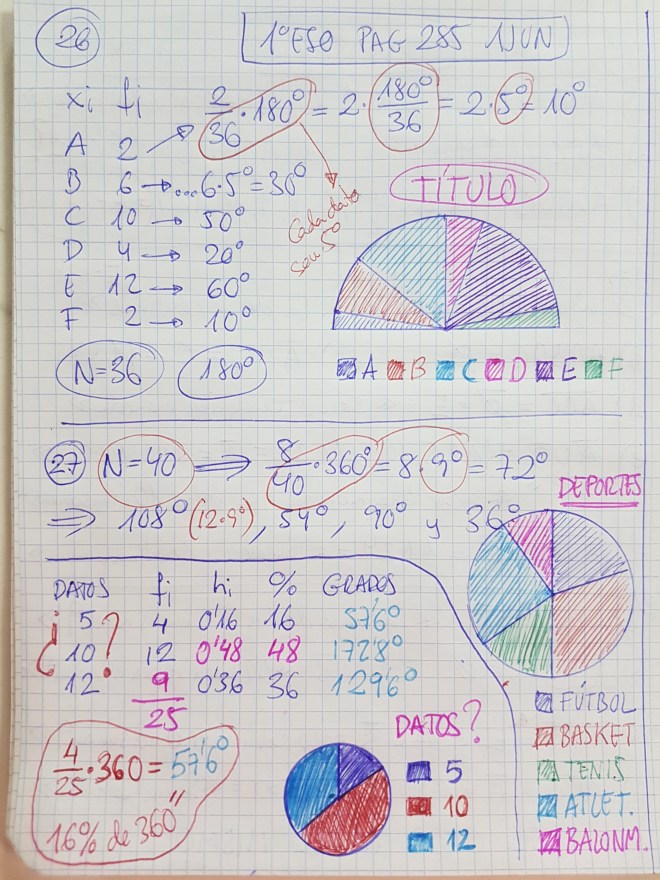 26
1ºESO PAG 285 1JUN
xi fi 2/36 · 180º = 2 · 180º/36 = 2 · 5º = 10º
A 2
B 6 → ...6·5º = 30º
C 10 → 50º
D 4 → 20º
E 12 → 60º
F 2 → 10º
Cada dato
son 5º
TÍTULO
N=36 180º
A B C D E F
27 N=40 ⟹ 8/40 · 360º = 8 · 9º = 72º
⟹ 108º (12·9º), 54º, 90º y 36º
DEPORTES
DATOS fi hi % GRADOS
¿ 5 ? 4 0'16 16 57'6º
10 12 0'48 48 172'8º
12 9 0'36 36 129'6º
25
4/25 · 360 = 57'6º
16% de 360"
DATOS?
5
10
12
FÚTBOL
BASKET
TENIS
ATLET.
BALONM.